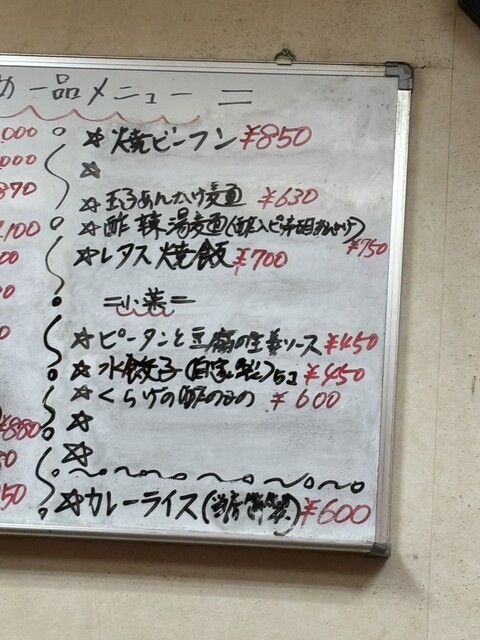 め一品メニュー =
,000
☆焼ビーフン ¥850
000
☆
870
☆玉子あんかけ麺 ¥630
,100
☆酢辣湯麺(酢入ピリ辛 ¥750
00
☆レタス焼飯 ¥700
=小菜=
☆ピータンと豆腐の生姜ソース ¥450
☆水餃子(自家製)5コ ¥450
☆くらげの酢のもの ¥600
¥880
☆
☆
50
☆カレーライス( ¥600